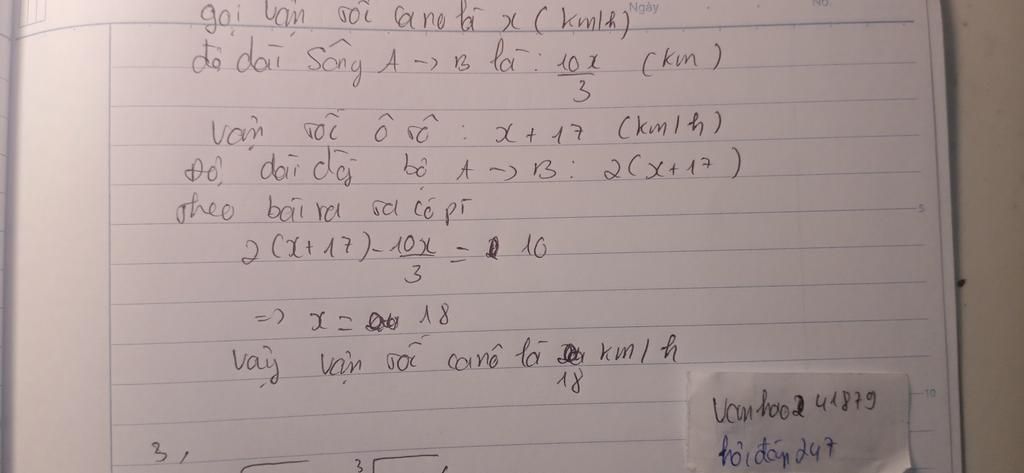 Ngày
No.
gọi vận tốc cano là x (km/h)
độ dài sông A → B là: 10x/3 (km)
vận tốc ô tô: x + 17 (km/h)
Độ dài đg bộ A → B: 2(x+17)
theo bài ra ta có pt
2(x+17) - 10x/3 = 10
=> x = 18
vậy vận tốc canô là 18 km/h
5
10
vanhoo2 41879
hỏi đáp 247
3,
3